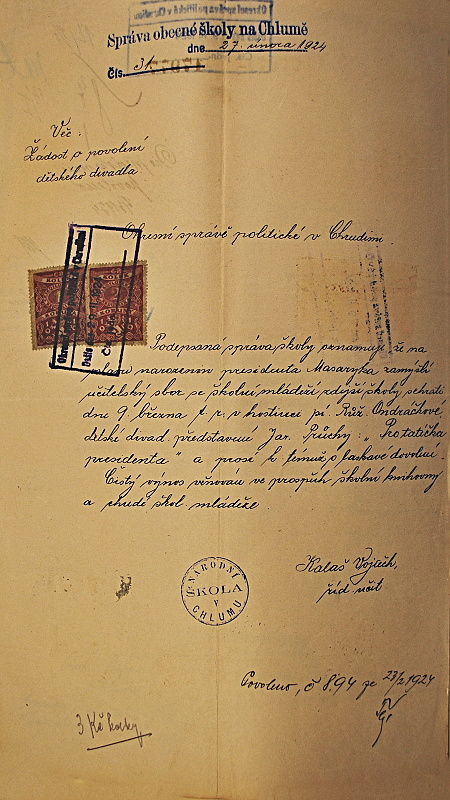 Správa obecné školy na Chlumě
dne 27. února 1924
Čís. 31.
Věc:
Žádost o povolení
dětského divadla
Okresní správě politické v Chrudimi.
Podepsaná správa školy oznamuje, že na
oslavu narozenin presidenta Masaryka zamýšlí
učitelský sbor se školní mládeží zdejší školy sehráti
dne 9. března t. r. v hostinci pí. Růž. Ondráčkové
dětské divad. představení Jar. Průchy: „Pro tatíčka
presidenta" a prosí k témuž o laskavé dovolení.
Čistý výnos věnován ve prospěch školní knihovny
a chudé škol. mládeže.
Kalaš Vojtěch,
říd. učit
NÁRODNÍ
ŠKOLA
V
CHLUMU
Povoleno, č 894 ze 1924
3 Kč kolky